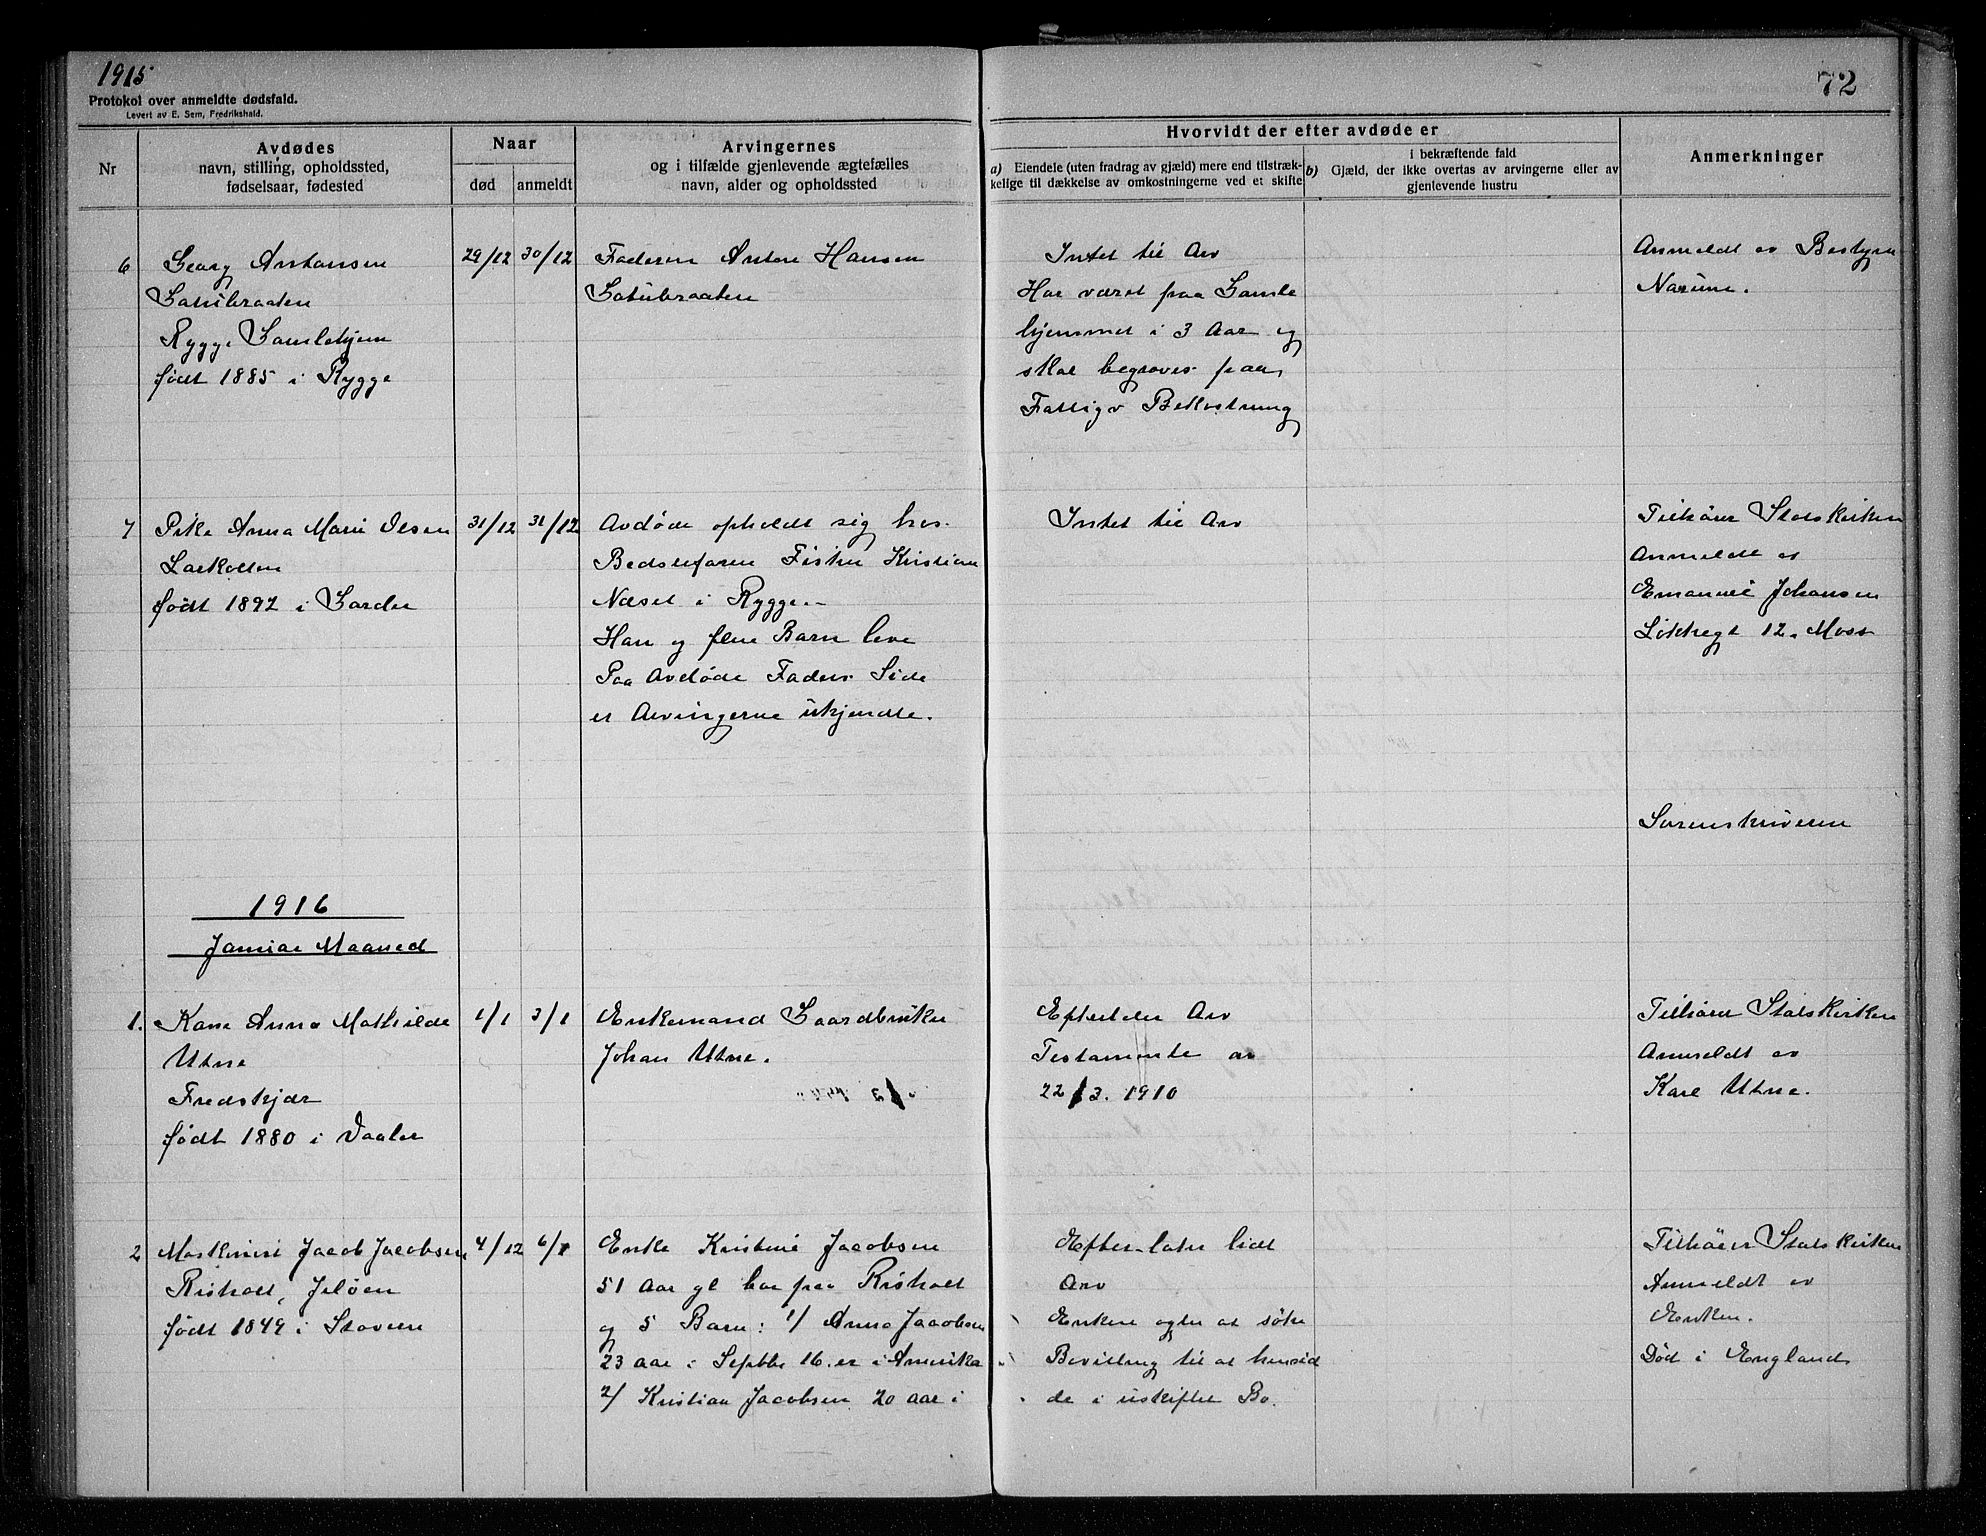 1915
72
Protokol over anmeldte dødsfald.
Levert av E. Sem, Fredrikshald.
Nr
Avdødes
navn, stilling, opholdssted,
fødselsaar, fødested
Naar
død
anmeldt
Arvingernes
og i tilfælde gjenlevende ægtefælles
navn, alder og opholdssted
Hvorvidt der efter avdøde er
a) Eiendele (uten fradrag av gjæld) mere end tilstræk-
kelige til dækkelse av omkostningerne ved et skifte
i bekræftende fald
b) Gjæld, der ikke overtas av arvingerne eller av
gjenlevende hustru
Anmerkninger
6
Georg Antonsen
Rygge Gamlehjem
født 1885 i Rygge
29/12
30/12
Faderen Anton Hansen
Intet til Arv
Har været paa Gamle
hjemmet i 3 Aar og
skal begraves paa
Fattigv Bekostning
Anmeldt av Bestyrer
7
Pike Anna Marie Olsen
Larkollen
født 1892 i
31/12
31/12
Avdøde opholdt sig hos
Bedstefaren Fisker Kristian
Næset i Rygge
Han og flere Barn leve
Paa Avdøde Faders Side
er Arvingerne ukjendte.
Intet til Arv
Tilhører Statskirken
Anmeldt av
Emanuel Johansen
12. Moss
Sorenskriveren
1916
Januar Maaned
1.
Kone Anna Mathilde
Utne
Fredskjær
født 1880 i Vaaler
1/1
3/1
Enkemand Gaardbruker
Johan Utne.
Efterlader Arv
Testamente av
22/3. 1910
Tilhører Statskirken
Anmeldt av
Karl Utne.
2
Maskinist Jacob Jacobsen
Risholt, Jeløen
født 1849 i Stavern
4/12
6/1
Enke Kristine Jacobsen
51 Aar gl bor paa Risholt
og 5 Barn: 1/ Anna Jacobsen
23 aar i Septbr 16. er i Amerika
2/ Kristian Jacobsen 20 aar i
Efterlater lidt
Arv
Enken agter at søke
Bevilling til at hensid
de i uskiftet Bo.
Tilhører Statskirken
Anmeldt av
Enken.
Død i England